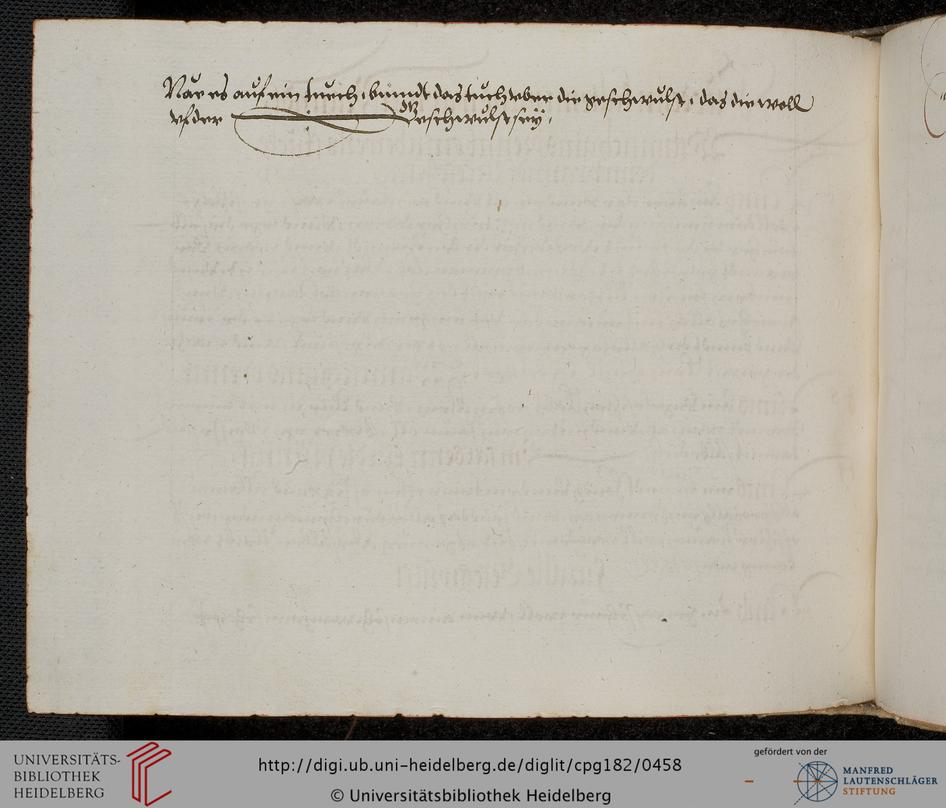 Näe es auf ein tuech, bundt das tuch vber die geschwulst, das die woll
vf der geschwulst sey,
UNIVERSITÄTS-
BIBLIOTHEK
HEIDELBERG
http://digi.ub.uni-heidelberg.de/diglit/cpg182/0458
© Universitätsbibliothek Heidelberg
gefördert von der
MANFRED
LAUTENSCHLÄGER
STIFTUNG